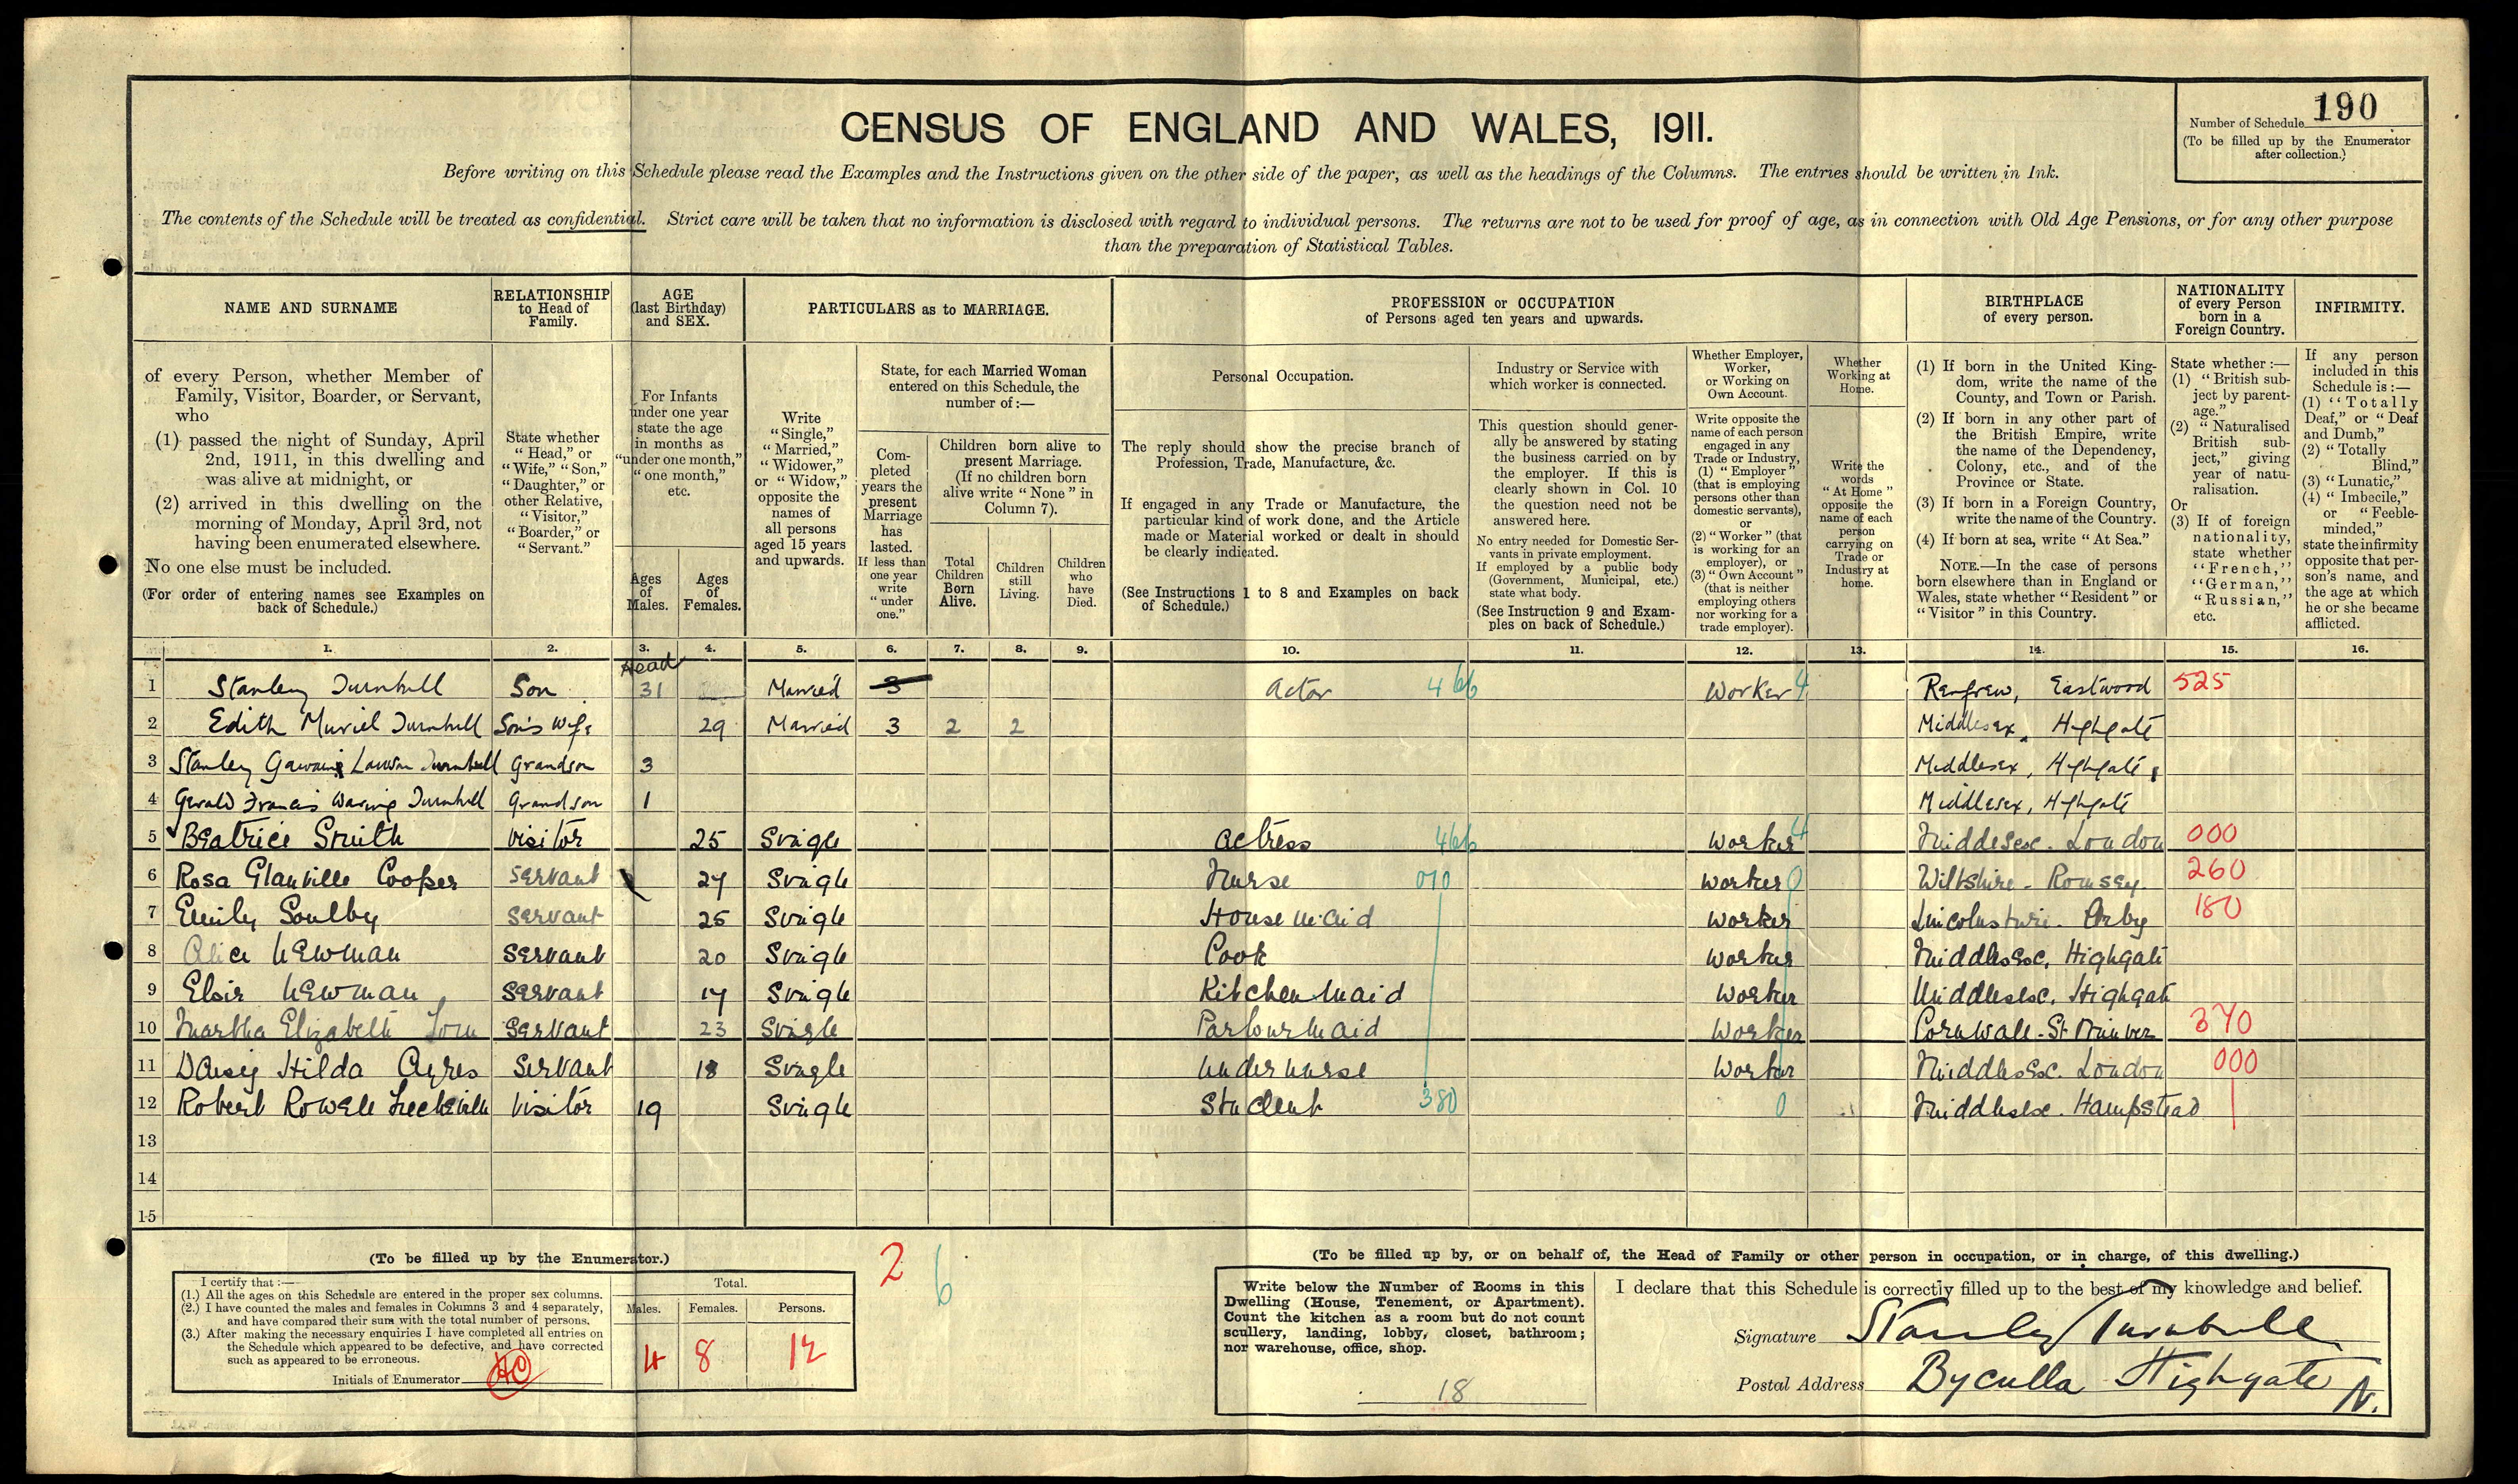 190
Number of Schedule
(To be filled up by the Enumerator
after collection.)
CENSUS OF ENGLAND AND WALES, 1911.
Before writing on this Schedule please read the Examples and the Instructions given on the other side of the paper, as well as the headings of the Columns. The entries should be written in Ink.
The contents of the Schedule will be treated as confidential. Strict care will be taken that no information is disclosed with regard to individual persons. The returns are not to be used for proof of age, as in connection with Old Age Pensions, or for any other purpose
than the preparation of Statistical Tables.
NAME AND SURNAME
of every Person, whether Member of
Family, Visitor, Boarder, or Servant,
who
(1) passed the night of Sunday, April
2nd, 1911, in this dwelling and
was alive at midnight, or
(2) arrived in this dwelling on the
morning of Monday, April 3rd, not
having been enumerated elsewhere.
No one else must be included.
(For order of entering names see Examples on
back of Schedule.)
RELATIONSHIP
to Head of
Family.
State whether
"Head," or
"Wife," "Son,"
"Daughter," or
other Relative,
"Visitor,"
"Boarder," or
"Servant."
AGE
(last Birthday)
and SEX.
For Infants
under one year
state the age
in months as
"under one month,"
"one month,"
etc.
Ages
of
Males.
Ages
of
Females.
PARTICULARS as to MARRIAGE.
Write
"Single,"
"Married,"
"Widower,"
or "Widow,"
opposite the
names of
all persons
aged 15 years
and upwards.
State, for each Married Woman
entered on this Schedule, the
number of:—
Com-
pleted
years the
present
Marriage
has
lasted.
If less than
one year
write
"under
one."
Children born alive to
present Marriage.
(If no children born
alive write "None" in
Column 7).
Total
Children
Born
Alive.
Children
still
Living.
Children
who
have
Died.
PROFESSION or OCCUPATION
of Persons aged ten years and upwards.
Personal Occupation.
The reply should show the precise branch of
Profession, Trade, Manufacture, &c.
If engaged in any Trade or Manufacture, the
particular kind of work done, and the Article
made or Material worked or dealt in should
be clearly indicated.
(See Instructions 1 to 8 and Examples on back
of Schedule.)
Industry or Service with
which worker is connected.
This question should gener-
ally be answered by stating
the business carried on by
the employer. If this is
clearly shown in Col. 10
the question need not be
answered here.
No entry needed for Domestic Ser-
vants in private employment.
If employed by a public body
(Government, Municipal, etc.)
state what body.
(See Instruction 9 and Exam-
ples on back of Schedule.)
Whether Employer,
Worker,
or Working on
Own Account.
Write opposite the
name of each person
engaged in any
Trade or Industry,
(1) "Employer"
(that is employing
persons other than
domestic servants),
or
(2) "Worker" (that
is working for an
employer), or
(3) "Own Account"
(that is neither
employing others
nor working for a
trade employer).
Whether
Working at
Home.
Write the
words
"At Home"
opposite the
name of each
person
carrying on
Trade or
Industry at
home.
BIRTHPLACE
of every person.
(1) If born in the United King-
dom, write the name of the
County, and Town or Parish.
(2) If born in any other part of
the British Empire, write
the name of the Dependency,
Colony, etc., and of the
Province or State.
(3) If born in a Foreign Country,
write the name of the Country.
(4) If born at sea, write "At Sea."
NOTE.—In the case of persons
born elsewhere than in England or
Wales, state whether "Resident" or
"Visitor" in this Country.
NATIONALITY
of every Person
born in a
Foreign Country.
State whether :—
(1) "British sub-
ject by parent-
age."
(2) "Naturalised
British sub-
ject," giving
year of natu-
ralisation.
Or
(3) If of foreign
nationality,
state whether
"French,"
"German,"
"Russian,"
etc.
INFIRMITY.
If any person
included in this
Schedule is :—
(1) "Totally
Deaf," or "Deaf
and Dumb,"
(2) "Totally
Blind,"
(3) "Lunatic,"
(4) "Imbecile,"
or "Feeble-
minded,"
state the infirmity
opposite that per-
son's name, and
the age at which
he or she became
afflicted.
1. 2. 3. 4. 5. 6. 7. 8. 9. 10. 11. 12. 13. 14. 15. 16.
Head
1 Stanley Turnbull Son 31 Married 3 Actor 466 Worker 4 Renfrew, Eastwood 525
2 Edith Muriel Turnbull Son's Wife 29 Married 3 2 2 Middlesex, Highgate
3 Stanley Gawaine Lawson Turnbull Grandson 3 Middlesex, Highgate
4 Gerald Francis Waring Turnbull Grandson 1 Middlesex, Highgate
5 Beatrice Smith Visitor 25 Single Actress 466 Worker 4 Middlesex. London 000
6 Rosa Glanville Cooper Servant 27 Single Nurse 010 Worker 0 Wiltshire - Romsey. 260
7 Emily Soulby Servant 25 Single Housemaid Worker Lincolnshire. Orby 180
8 Alice Newman Servant 20 Single Cook Worker Middlesex, Highgate
9 Elsie Newman Servant 17 Single Kitchenmaid Worker Middlesex, Highgate
10 Martha Elizabeth Servant 23 Single Parlourmaid Worker Cornwall - St Minver 370
11 Daisy Hilda Ayres Servant 18 Single Undernurse Worker Middlesex. London 000
12 Robert Rowell Visitor 19 Single Student 380 0 Middlesex. Hampstead
13
14
15
(To be filled up by the Enumerator.)
I certify that :—
(1.) All the ages on this Schedule are entered in the proper sex columns.
(2.) I have counted the males and females in Columns 3 and 4 separately,
and have compared their sum with the total number of persons.
(3.) After making the necessary enquiries I have completed all entries on
the Schedule which appeared to be defective, and have corrected
such as appeared to be erroneous.
Initials of Enumerator HC
Total.
Males. Females. Persons.
4 8 12
2 6
(To be filled up by, or on behalf of, the Head of Family or other person in occupation, or in charge, of this dwelling.)
Write below the Number of Rooms in this
Dwelling (House, Tenement, or Apartment).
Count the kitchen as a room but do not count
scullery, landing, lobby, closet, bathroom;
nor warehouse, office, shop.
18
I declare that this Schedule is correctly filled up to the best of my knowledge and belief.
Signature Stanley Turnbull
Postal Address Byculla Highgate N.